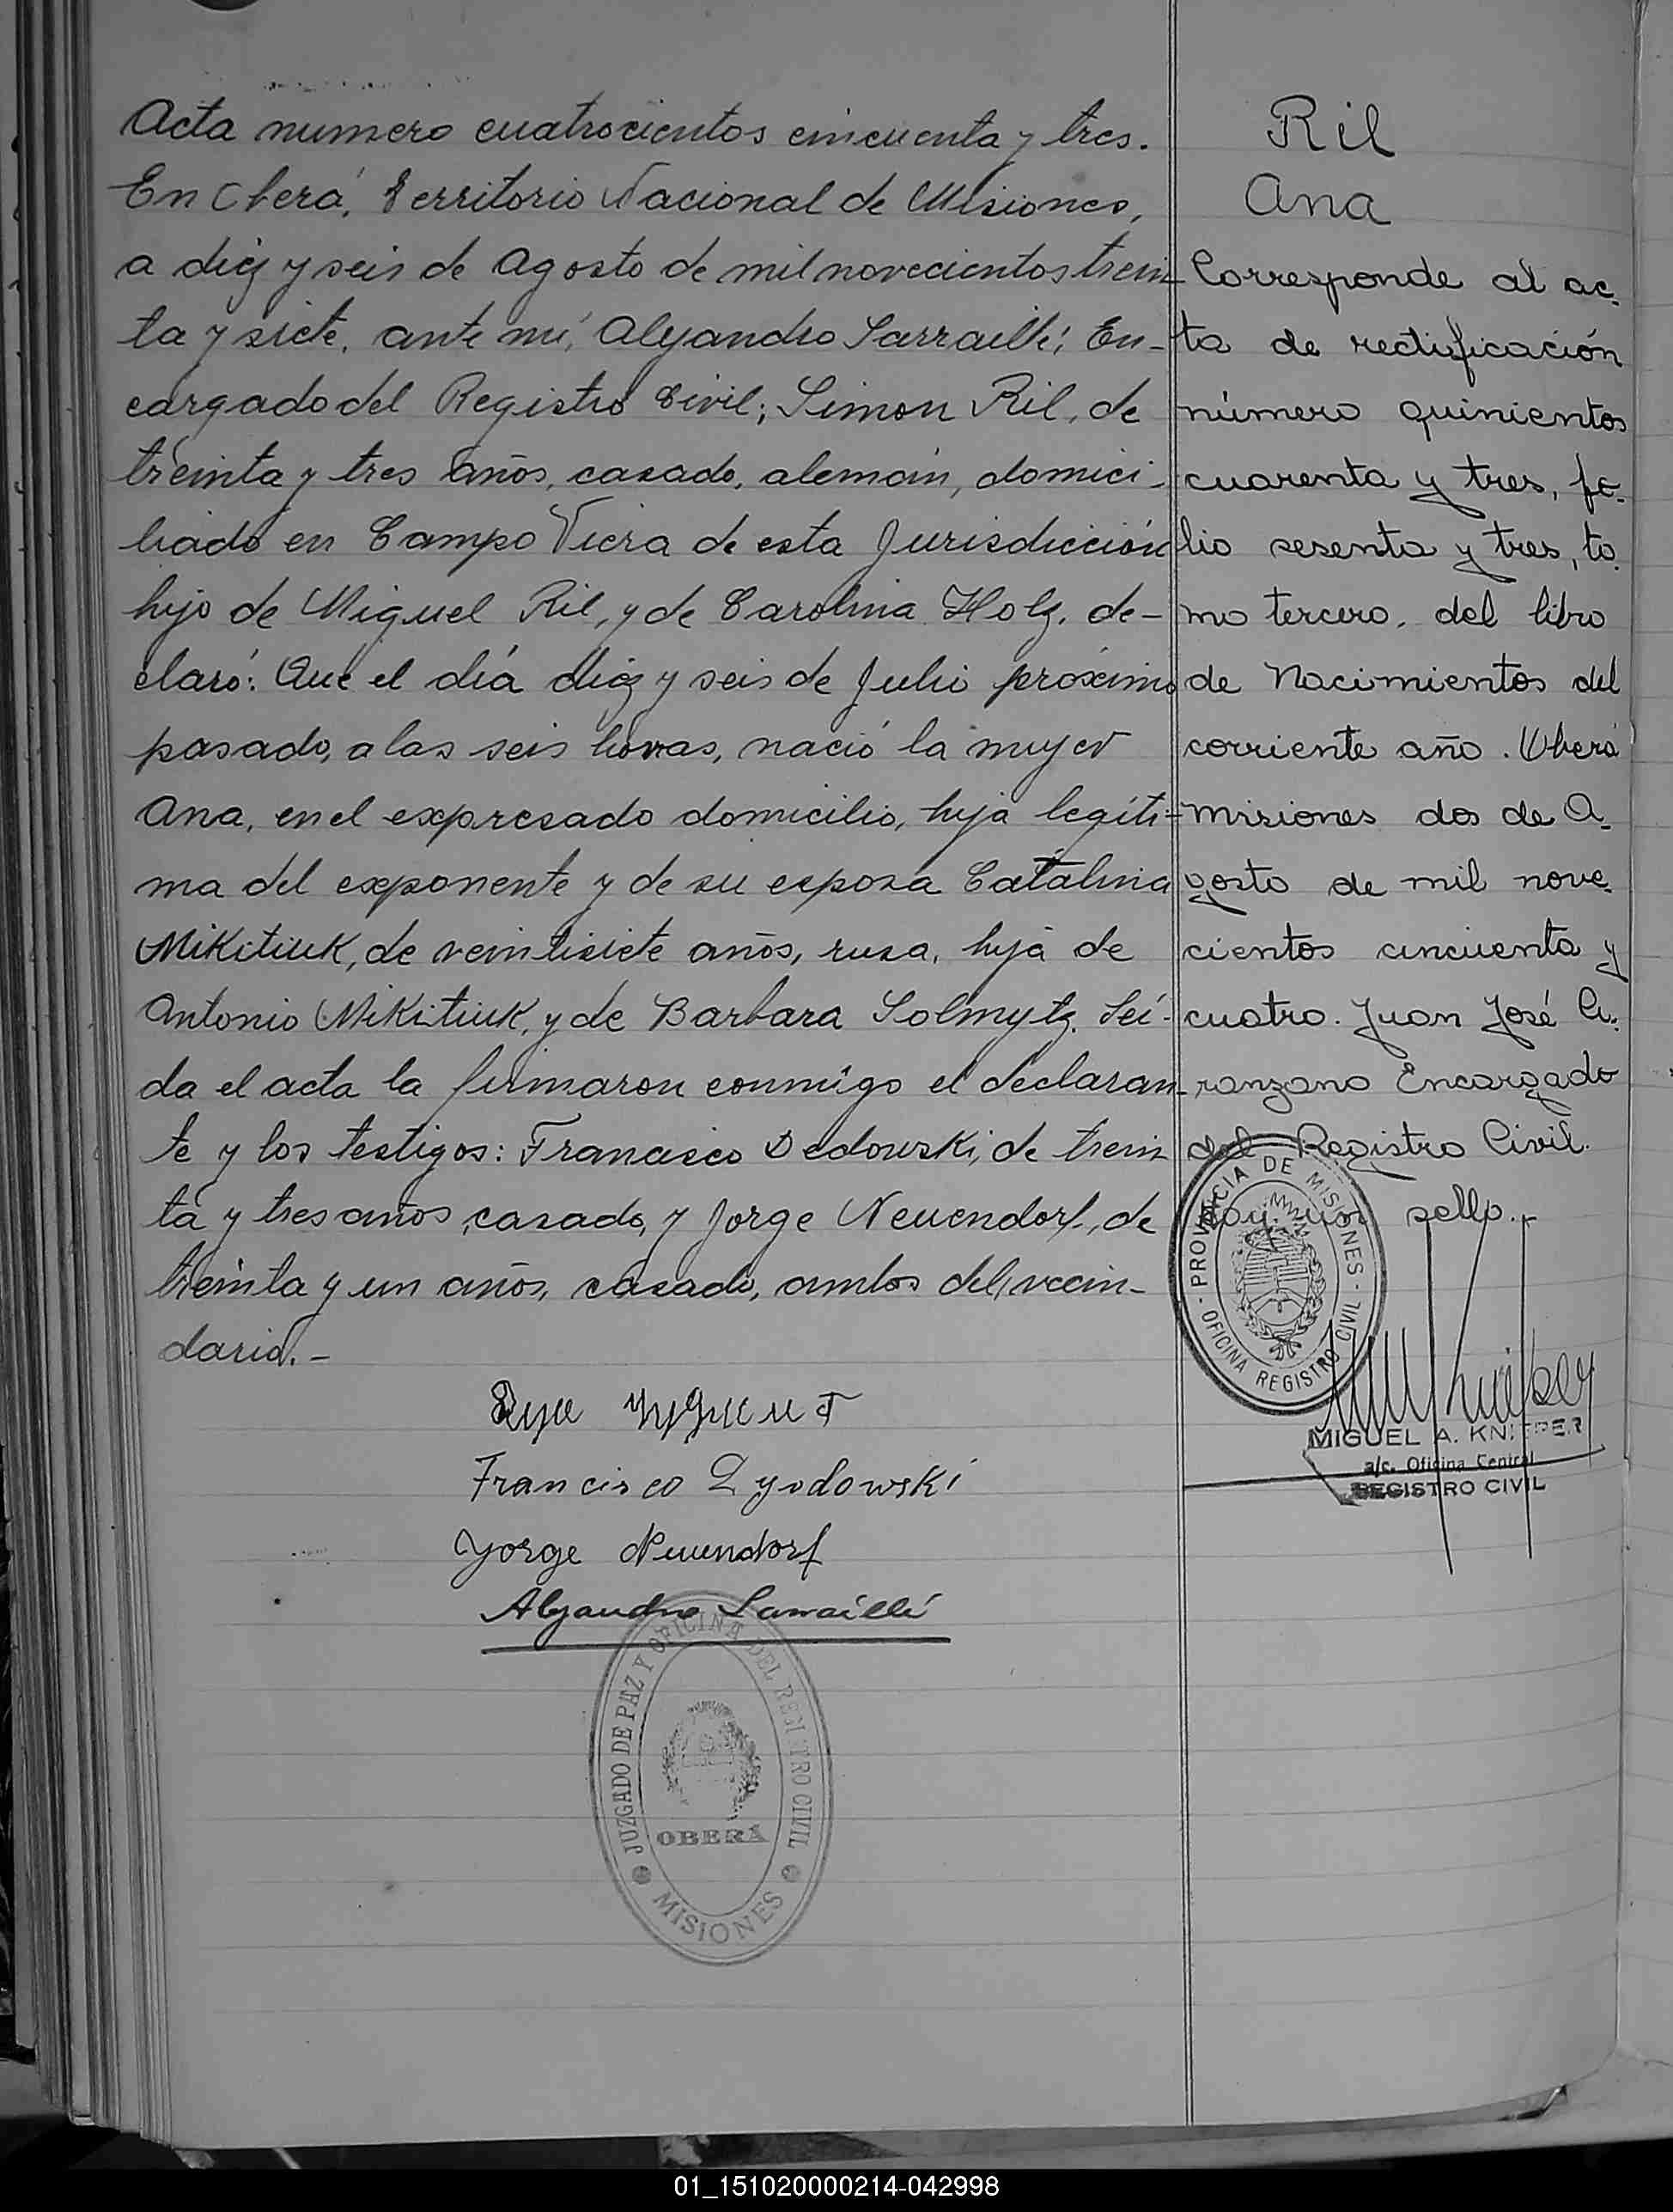 Acta numero cuatrocientos cincuenta y tres.
En Oberá, Territorio Nacional de Misiones,
a diez y seis de Agosto de mil novecientos trein-
ta y siete, ante mí, Alejandro Sarraillé; En-
cargado del Registro Civil; Simon Ril, de
treinta y tres años, casado, alemán, domici-
liado en Campo Viera de esta Jurisdicción
hijo de Miguel Ril, y de Carolina Holz, de-
claró: Que el día diez y seis de Julio próximo
pasado, a las seis horas, nació la mujer
Ana, en el expresado domicilio, hija legíti-
ma del exponente y de su esposa Catalina
Mikitiuk, de veintisiete años, rusa, hija de
Antonio Mikitiuk, y de Barbara Solmytz. Leí-
da el acta la firmaron conmigo el declaran-
te y los testigos: Francisco Dedowski, de trein
ta y tres años, casado, y Jorge Neuendorf, de
treinta y un años, casado, ambos del vecin-
dario.-
Francisco Dyodowski
Jorge Neuendorf
Alejandro Sarraillé
JUZGADO DE PAZ Y OFICINA DEL REGISTRO CIVIL
OBERÁ
MISIONES
Ril
Ana
Corresponde al ac-
ta de rectificación
número quinientos
cuarenta y tres, fo-
lio sesenta y tres, to-
mo tercero, del libro
de Nacimientos del
corriente año. Oberá
Misiones dos de A-
gosto de mil nove-
cientos cincuenta y
cuatro. Juan José
Encargado
del Registro Civil.
sello.-
PROVINCIA DE MISIONES
OFICINA REGISTRO CIVIL
MIGUEL A. KNIPPER
a/c. Oficina Central
REGISTRO CIVIL
01_151020000214-042998